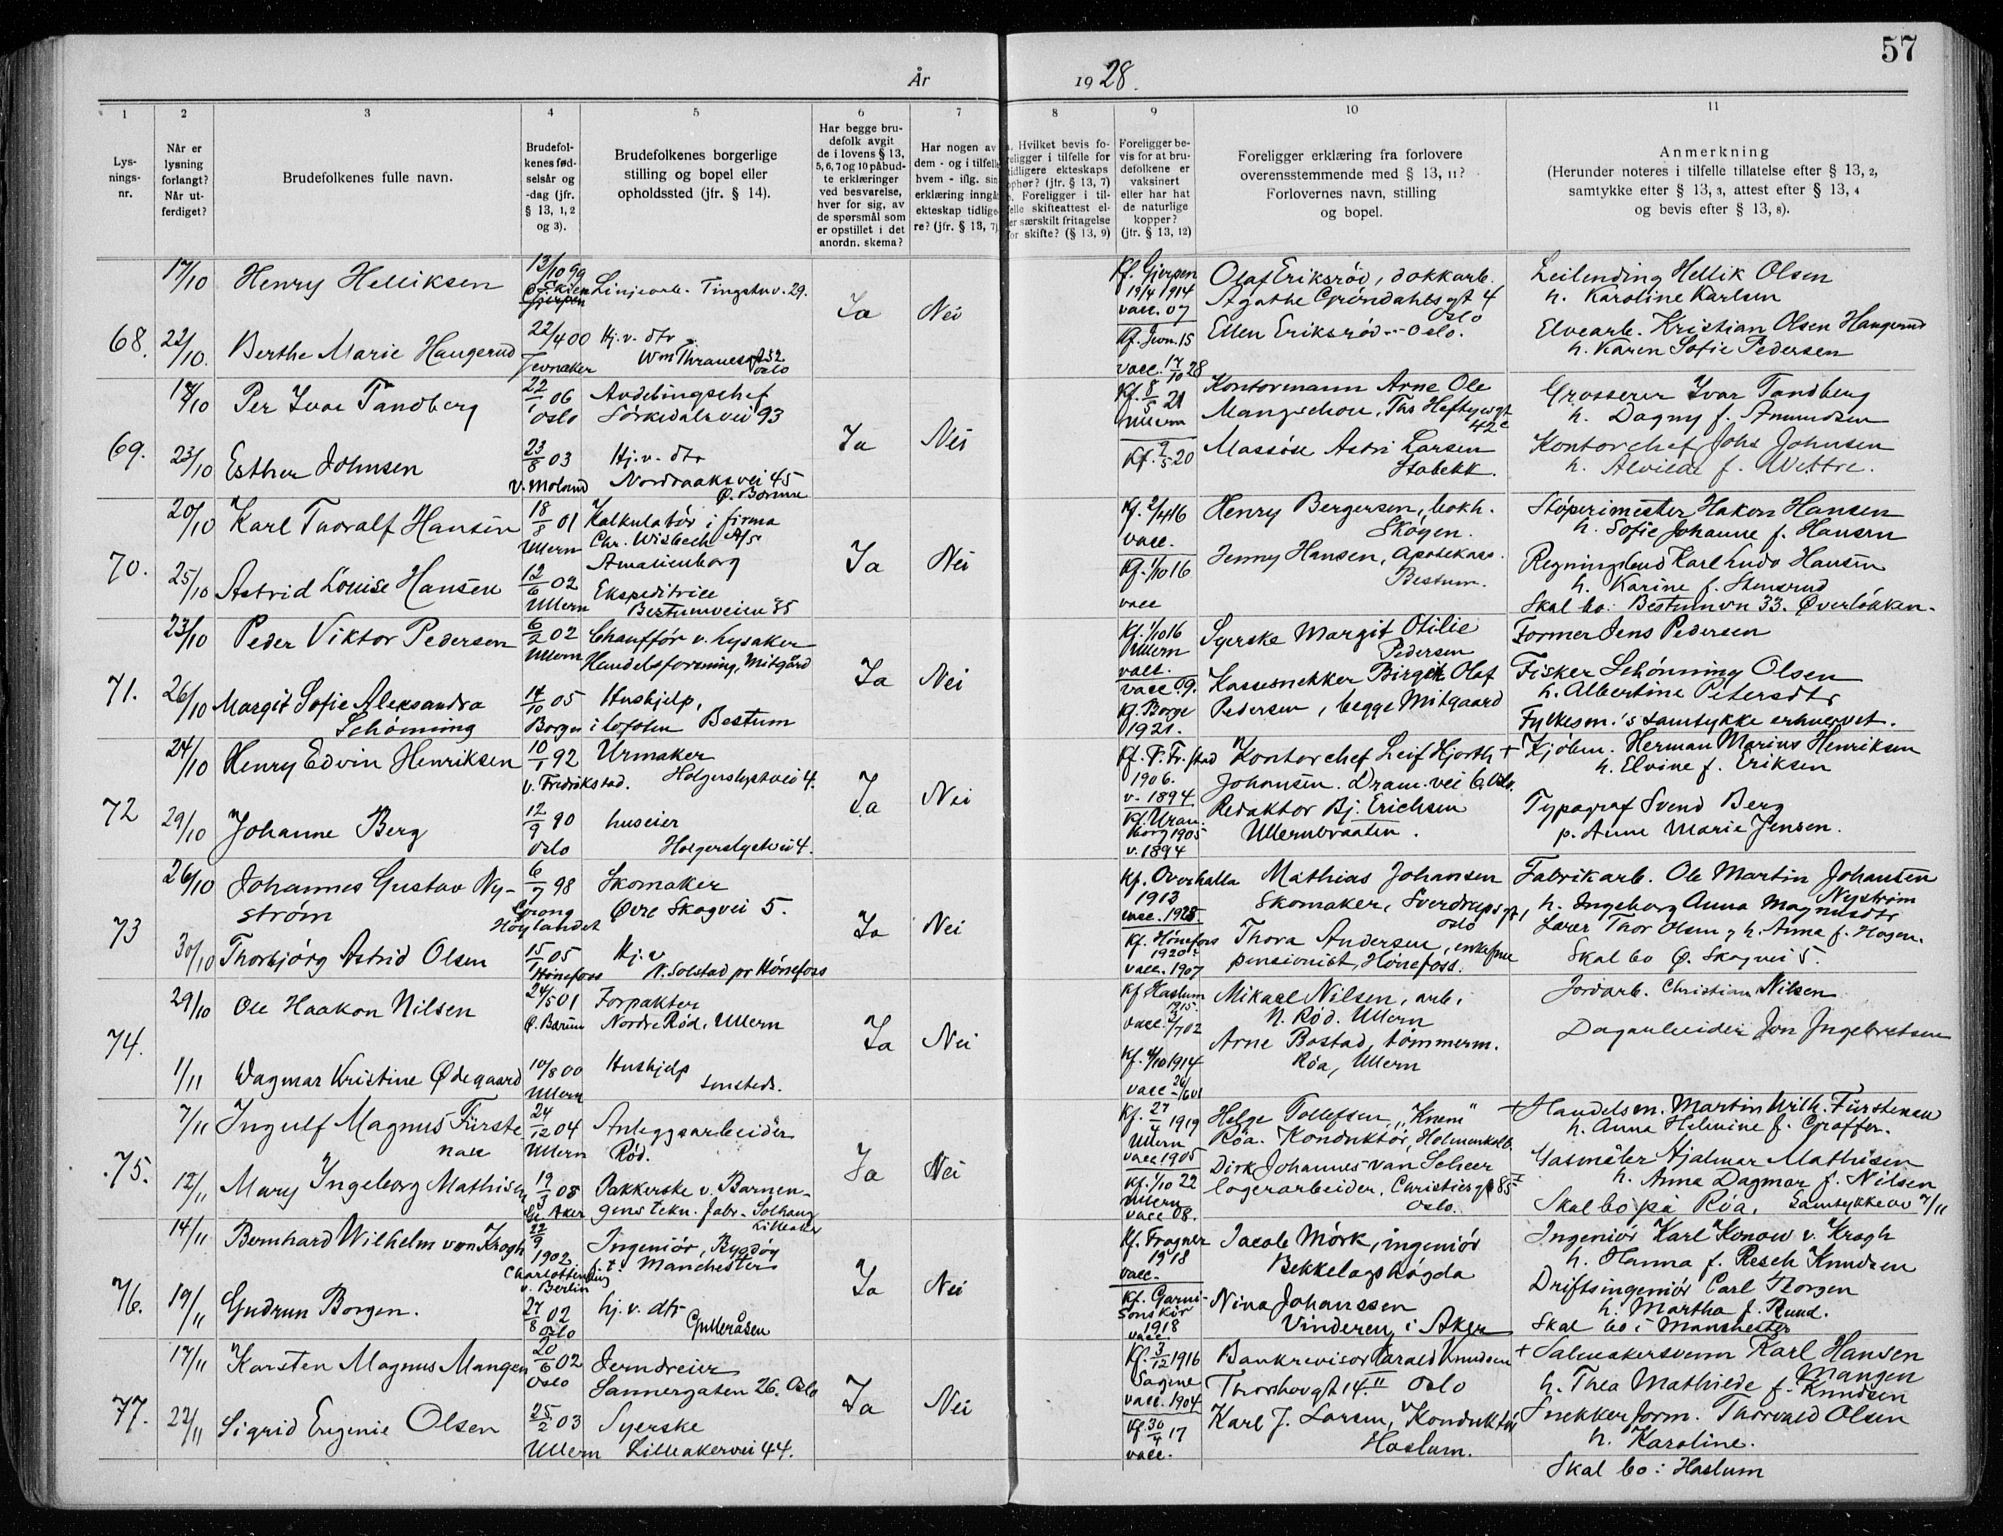 57
År 1928.
1 2 3 4 5 6 7 8 9 10 11
Lys-
nings-
nr.
Når er
lysning
forlangt?
Når ut-
ferdiget?
Brudefolkenes fulle navn.
Brudefol-
kenes fød-
selsår og
-dag (jfr.
§ 13, 1, 2
og 3).
Brudefolkenes borgerlige
stilling og bopel eller
opholdssted (jfr. § 14).
Har begge bru-
defolk avgit
de i lovens § 13,
5, 6, 7 og 10 påbud-
te erklæringer
ved besvarelse,
hver for sig, av
de spørsmål som
er opstillet i det
anordn. skema?
Har nogen av
dem - og i tilfelle
hvem - iflg. sin
erklæring inngåt
ekteskap tidlige-
re? (jfr. § 13, 7).
a. Hvilket bevis fo-
religger i tilfelle for
tidligere ekteskaps
ophør? (jfr. § 13, 7)
b. Foreligger i til-
felle skifteattest el-
ler særskilt fritagelse
for skifte? (§ 13, 9)
Foreligger be-
vis for at bru-
defolkene er
vaksinert
eller har hat
de naturlige
kopper?
(jfr. § 13, 12)
Foreligger erklæring fra forlovere
overensstemmende med § 13, 11?
Forlovernes navn, stilling
og bopel.
Anmerkning
(Herunder noteres i tilfelle tillatelse efter § 13, 2,
samtykke efter § 13, 3, attest efter § 13, 4
og bevis efter § 13, 8).
68.
17/10 Henry Helliksen
13/10 99
Skien
Gjerpen
Linjearb. Tingstuv. 29.
Ja Nei
Kf. Gjerpen
19/4 1914
vacc. 07
Olaf Eriksrød, dokkarb.
Agathe Grøndahlsgt 4
Oslo
Leilending Hellik Olsen
h. Karoline Karlsen
22/10. Berthe Marie Haugerud
22/4 00
Jevnaker
Hj. v. dtr
Wm Thranesgt 52
Oslo
Kf. Jevn. 15
vacc. 17/10 28
Ellen Eriksrød - Oslo.
Elvearb. Kristian Olsen Haugerud
h. Karen Sofie Pedersen
69.
18/10 Per Ivar Tandberg
22/1 06
Oslo
Avdelingschef
Sørkedalsvei 93
Ja Nei
Kf. 8/5 21
Ullern
Kontormann Arne Ole
Mangschou, Ths Heftyesgt
42c
Grosserer Ivar Tandberg
h. Dagny f. Amundsen
23/10 Esther Johnsen
23/8 03
V. Moland
Hj. v. dtr
Nordraaksvei 45
Ø. Bærum
Kf. 9/5 20
Massøse Astri Larsen
Stabekk.
Kontorchef Johs Johnsen
h. Alvilde f. Wettre.
70.
20/10 Karl Thoralf Hansen
18/5 01
Ullern
Kalkulatør i firma
Chr. Wisbech A/S
Amalienborg
Ja Nei
Kf. 2/4 16
vacc.
Henry Bergersen, bokh.
Skøyen.
Støperimester Hakon Hansen
h. Sofie Johanne f. Hansen
25/10 Astrid Louise Hansen
12/6 02
Ullern
Ekspeditrice
Bestumveien 85
Kf. 1/10 16
vacc
Jenny Hansen, Apotekass.
Bestum.
Regningsbud Karl Ludv Hansen
h. Karine f. Stensrud
Skal bo: Bestumvn 33. Øverløkken.
71.
23/10 Peder Viktor Pedersen
6/2 02
Ullern
Chauffør v. Lysaker
Handelsforening, Mitgård
Ja Nei
Kf. 1/10 16
Ullern
vacc.
Syerske Margit Otilie
Pedersen
Former Jens Pedersen
26/10 Margit Sofie Aleksandra
Schønning
14/10 05
Borge i Lofoten
Hushjelp,
Bestum
vacc 09.
Kf. Borge
1921.
Kassesnekker Birger Olaf
Pedersen, begge Mitgaard
Fisker Schønning Olsen
h. Albertine Petersdtr
Fylkesm.'s samtykke erhvervet.
72
24/10 Henry Edvin Henriksen
10/1 92
v. Fredrikstad.
Urmaker
Holgerslystvei 4.
Ja Nei
Kf. V. Fr.stad
1906.
v. 1894
Kontorchef Leif Hjorth
Johansen. Dram. vei 6. Oslo.
+ Kjøbm. Herman Marius Henriksen
h. Elvine f. Eriksen
29/10 Johanne Berg
12/9 90
Oslo
huseier
Holgerslystvei 4.
Kf. Uran.
borg 1905
v. 1894
Redaktør Bj. Erichsen
Ullernbraaten.
Typograf Svend Berg
p. Anne Marie Jensen.
73
26/10 Johannes Gustav Ny-
strøm
6/7 98
Grong
Høylandet
Skomaker
Øvre Skogvei 5.
Ja Nei
Kf. Overhalla
1913
vacc. 1928.
Mathias Johansen
Skomaker, Sverdrupsgt,
Oslo
Fabrikarb. Ole Martin Johansen
Nystrøm
h. Ingeborg Anna Magnusdtr
30/10 Thorbjørg Astrid Olsen
15/1 05
Hønefoss
Hj. v
N. Solstad pr Hønefoss
Kf. Hønefoss
1920
vacc. 1907
Thora Andersen, enkefrue
pensionist, Hønefoss.
Lærer Thor Olsen & h. Anna f. Hagen.
Skal bo Ø. Skogvei 5.
74.
29/10 Ole Haakon Nilsen
24/5 01
Ø. Bærum
Forpakter
Nordre Rød, Ullern
Ja Nei
Kf Haslum
1915.
vacc. 2/7 02
Mikael Nilsen, arb.
N. Rød. Ullern
Jordarb. Christian Nilsen
1/11 Dagmar Kristine Ødegaard
10/8 00
Ullern
Hushjelp
smsteds.
Kf. 4/10 1914
vacc 26/6 01
Arne Bostad, tømmerm.
Røa, Ullern
Dagarbeider Jon Ingebretsen
75.
7/11 Ingulf Magnus Fürste
nau
24/12 04
Ullern
Anleggsarbeider
Rød.
Ja Nei
Kf. 27/4 1919
Ullern
vacc 1905
Helge Tollefsen, "Knem"
Røa. Konduktør, Holmenkolb.
+ Handelsm. Martin Wilh. Fürstenau
h. Anna Helmine f. Graffer.
12/11 Mary Ingeborg Mathisen
19/3 08
Ø. Aker
Pakkerske v. Barnen-
gens tekn. fabr. Solhaug
Lilleaker
Kf. 1/10 22
Ullern
vacc 08.
Dirk Johannes van Scheer
lagerarbeider, Christiesgt 85 I
Oslo.
Gasmåler Hjalmar Mathisen
h. Anna Dagmar f. Nilsen
Skal bo på Røa. Samtykke av 7/11
76.
14/11 Bernhard Wilhelm von Krogh
22/9
1902
Charlottenburg
v. Berlin
Ingeniør, Bygdøy
p.t. Manchester
Ja Nei
Kf. Frogner
1918
vacc.
Jacob Mørk, ingeniør
Bekkelagshøgda
Ingeniør Karl Konow v. Krogh
h. Hanna f. Resch Knudsen
19/11 Gudrun Borgen.
27/8 02
Oslo
hj. v. dtr
Gulleråsen
Kf. Garni-
sonskir
1918
vacc
Nina Johanssen
Vinderen i Aker
Driftsingeniør Carl Borgen
h. Martha f. Ruud.
Skal bo i Manchester
77.
17/11 Karsten Magnus Mangen
20/6 02
Oslo
Jerndreier
Sannergaten 26. Oslo
Ja Nei
Kf. 3/12 1916
Sagene
vacc. 1904
Bankrevisor Harald Knudsen
Thorshovgt 14. II Oslo
+ Salmakersvenn Karl Hansen
Mangen
h. Thea Mathilde f. Knudsen
22/11 Sigrid Eugenie Olsen
25/2 03
Ullern
Syerske
Lilleakervei 44.
Kf 30/4 17
vacc.
Karl J. Larsen, Konduktør
Haslum.
Snekkerform. Thorvald Olsen
h. Karoline.
Skal bo: Haslum